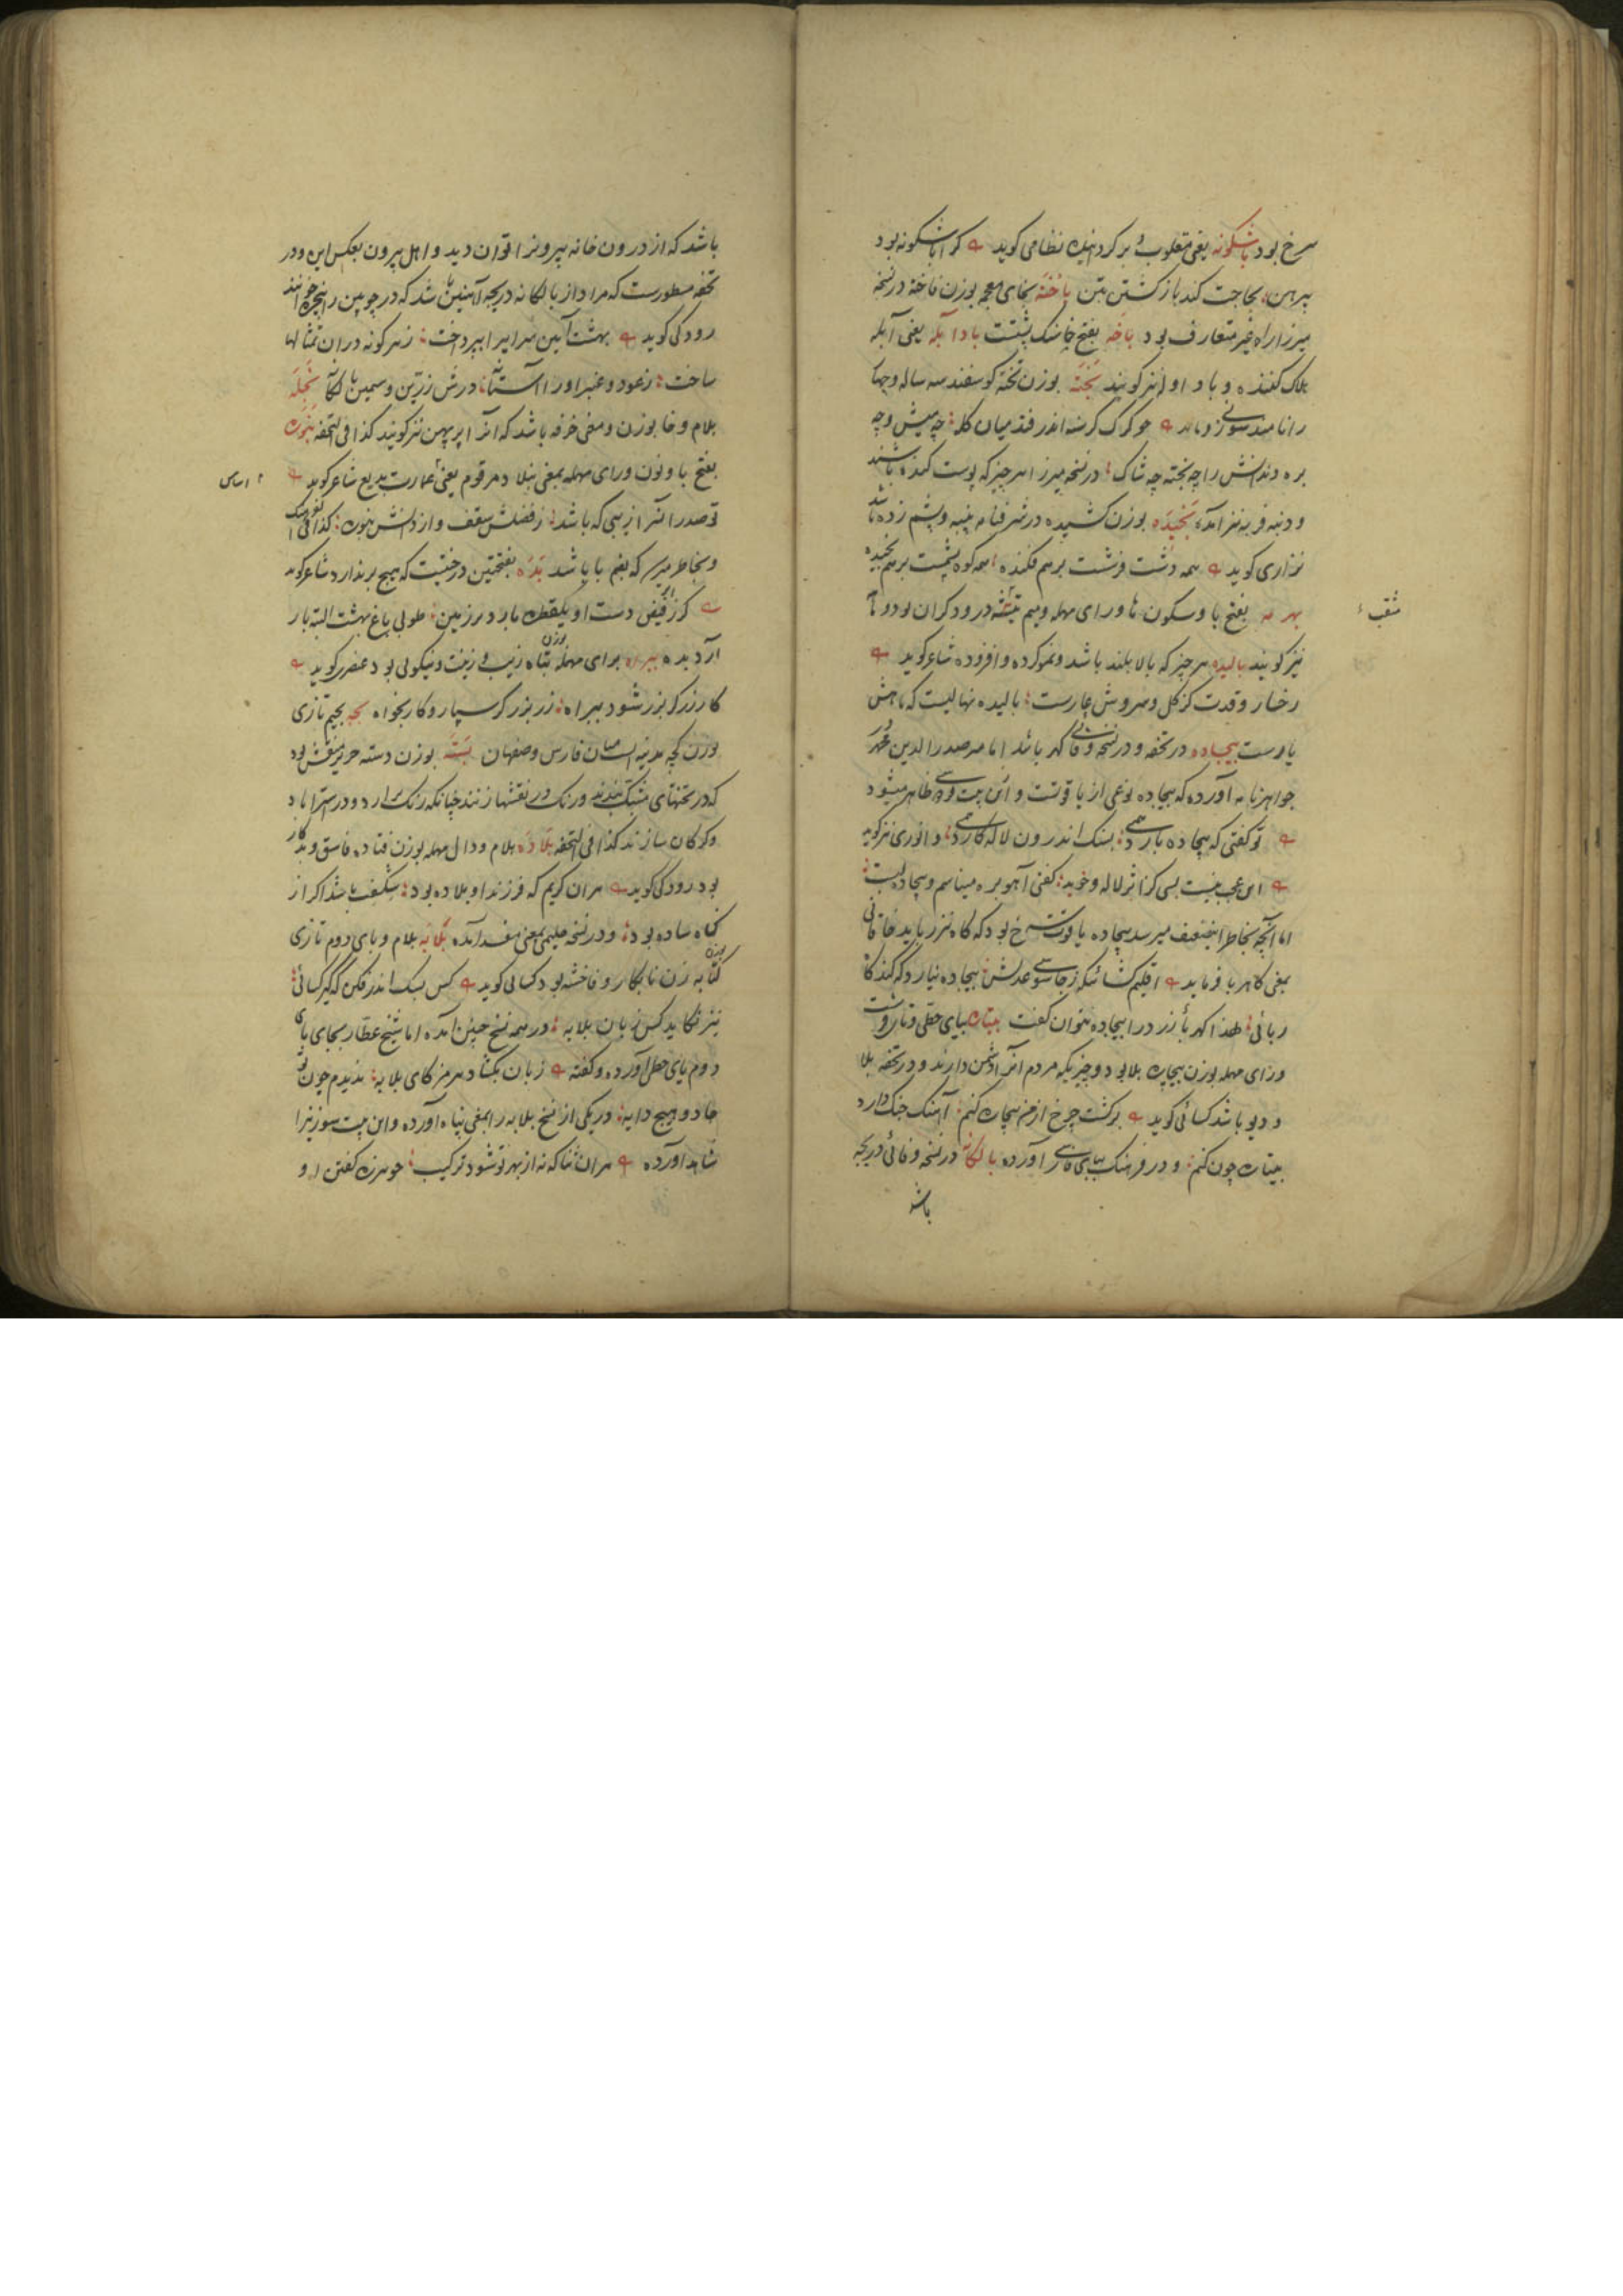 سرخ بود باشکونه یعنی مقلوب و برگردانیده نظامی گوید کرا باشکونه بود
پیرهن بحاجت کند بازگشتن بتن باخته بخای معجمه بوزن فاخته در نسخه
میرزا راه غیر متعارف بود باخه بفتح خا سنک پشتست بادا بله یعنی آبله
هلاک کننده و باد او را نیز گویند بخته بوزن تخته گوسفند سه ساله و چهار
را نامند سوزنی چو گرگ گرسنه اندر فتد میان گله چه میش و چه
بره دندانش را چه بخته چه شاک در نسخه میرزا هر چیز که پوست کنده باشند
و دنبه فربه نیز آمده بخیده بوزن کشیده در شرفنامه پنبه و پشم زده باشد
نزاری گوید همه دشت و شت برهم فکنده همه کوه پشمست برهم بخیده
بهرمه بفتح با و سکون ها و رای مهمله و میم تیشه درودگران بود و
مثقب
نیز گویند بالیده هر چیز که بالا بلند باشد و نمو کرده و افزوده شاعر گوید
رخسار و قدت کز گل و سروش عارست بالیده نهالیست که ماهش
بارست بیجاده در تحفه و در نسخه وفائی کهربا باشد اما میر صدرالدین محمد
جواهرنامه آورده که بیجاده نوعی از یاقوتست و ازین بیت ظاهر میشود
تو گفتی که بیجاده بارد همی بسنک اندرون لاله کارد همی و انوری نیز گوید
این عجب نیست بسی کز اثر لاله و خوید گفتی آهو بره میناسم و بیجاده لبست
اما آنچه بخاطر این ضعیف میرسد بیجاده یاقوت سرخ بود که کاه نیز رباید خاقانی
بمعنی کاهربا فرماید اقلیم کشائیکه ز جاسوس عدلش بیجاده نیارد که کند کاه
ربائی لهذا کهربا زرد را بیجاده نتوان گفت بیتاره بیای حطی و تا
و رای مهمله بوزن بیچاره بلا بود و چیزیکه مردم آنرا دشمن دارند و در تحفه بلا
و دیو باشد کسائی گوید برگشت چرخ از من بیچاره کنم آهنگ جنگ دارد
بیتاره چون کنم و در فرهنگ بیای فارسی آورده بالکانه در نسخه وفائی دریچه
باشد
باشد که از درون خانه بیرون را توان دید و اهل بیرون بعکس این و در
تحفه مسطورست که مراد از بالکانه دریچه آهنین باشد که در چوبین را پنجره خوانند
رودکی گوید بهشت آیین سرایی را بپرداخت ز هر گونه دران تمثالها
ساخت ز عود و عنبر او را آستانه درش زرین و سیمین بالکانه بخله
بلام و خا بوزن و معنی خرفه باشد که آنرا پرپهن نیز گویند کذا فی التحفه بنوره
بفتح با و نون و رای مهمله بمعنی بنلاد مرقوم یعنی عمارت بدیع شاعر گوید
اساس
تو صدر از بی که باشد ز فضلش سقف و از دانش بنوره کذا فی
و بخاطر میرسد که بضم با باشد بده بفتحتین درختیست که هیچ بر ندارد شاعر گوید
گر از فیض دست او یکقطره بارد بر زمین طوبی باغ بهشت البته بار
آرد بده ببراه برای مهمله بوزن تباه زیب و زینت و نیکوئی بود عنصری گوید
کار زرگر بزر شود ببراه زر بزرگر سپار و کار بخواه بجه بجیم تازی
بوزن کجه مدینه ایست میان فارس و صفهان بسته بوزن دسته حریر منقش بود
که در تختهای مشبک بندند و رنک در نقشها زنند چنانکه رنک آرد و در استراباد
و گرگان سازند کذا فی التحفه بلاده بلام و دال مهمله بوزن فتاده فاسق و بدکار
بود رودکی گوید هران کریم که فرزند او بلاده بود شکفت باشد اگر از
گناه ساده بود و در نسخه حلیمی بمعنی مفسد آمده بلابه بلام و بای دوم تازی
بوزن کتابه زن نابکار و فاحشه بود کسائی گوید کس بسک اندر فکن که گیر کسائی
نیز نگاید کس زنان بلابه در همه نسخ چنین آمده اما شیخ عطار بجای بای
دوم یای حطی آورده و گفته زبان بکشاد هرمز کای بلایه ندیدم چون تو
جادو هیچ دایه در یکی از نسخ بلابه را بمعنی تباه آورده و این بیت سوزنی را
شاهد آورده هران ثنا که نه از بهر تو شود ترکیب چو هرزه گفتن او